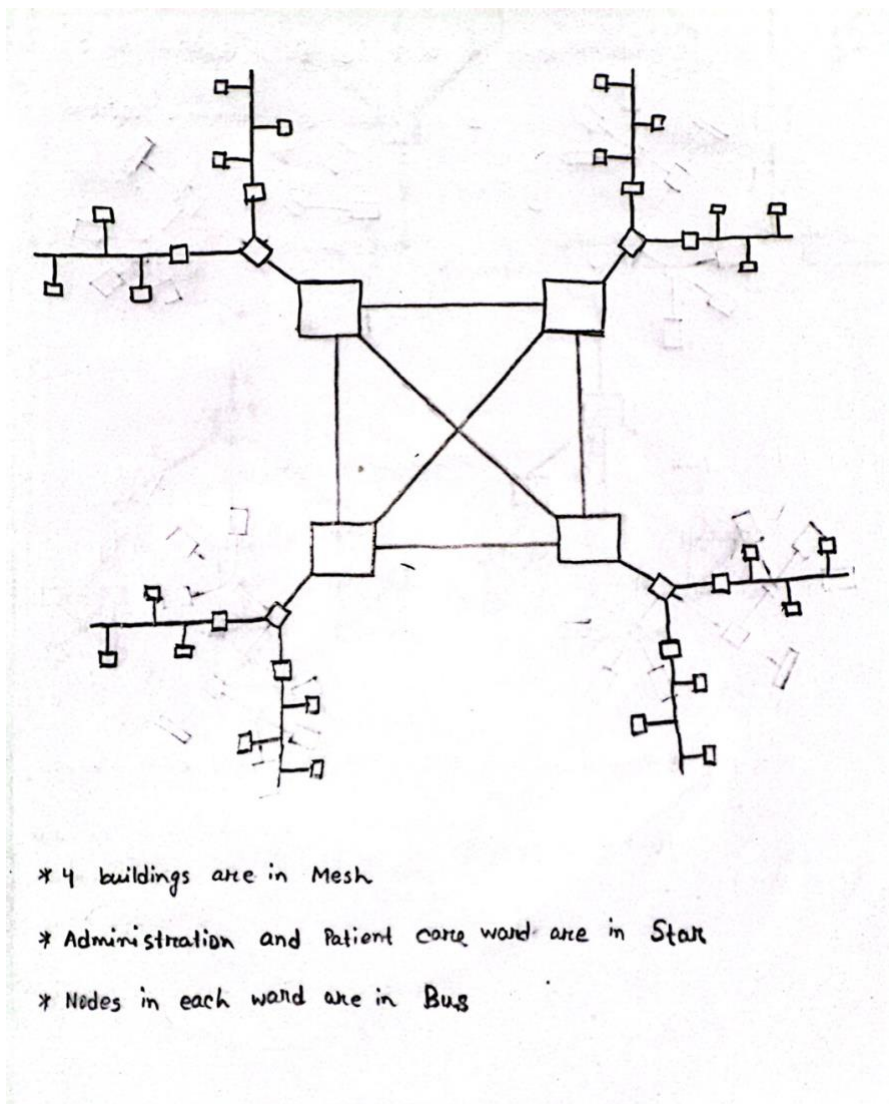 * 4 buildings are in Mesh
* Administration and Patient care ward are in Star
* Nodes in each ward are in Bus